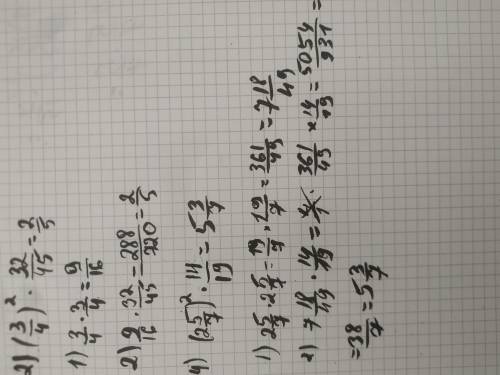 2) (3/4)² · 32/45 = 2/5
1) 3/4 · 3/4 = 9/16
2) 9/16 · 32/45 = 288/720 = 2/5
4) (2 5/7)² · 14/19 = 5 3/7
1) 2 5/7 · 2 5/7 = 19/7 · 19/7 = 361/49 = 7 18/49
2) 7 18/49 · 14/19 = 361/49 × 14/19 = 5054/931 =
= 38/7 = 5 3/7